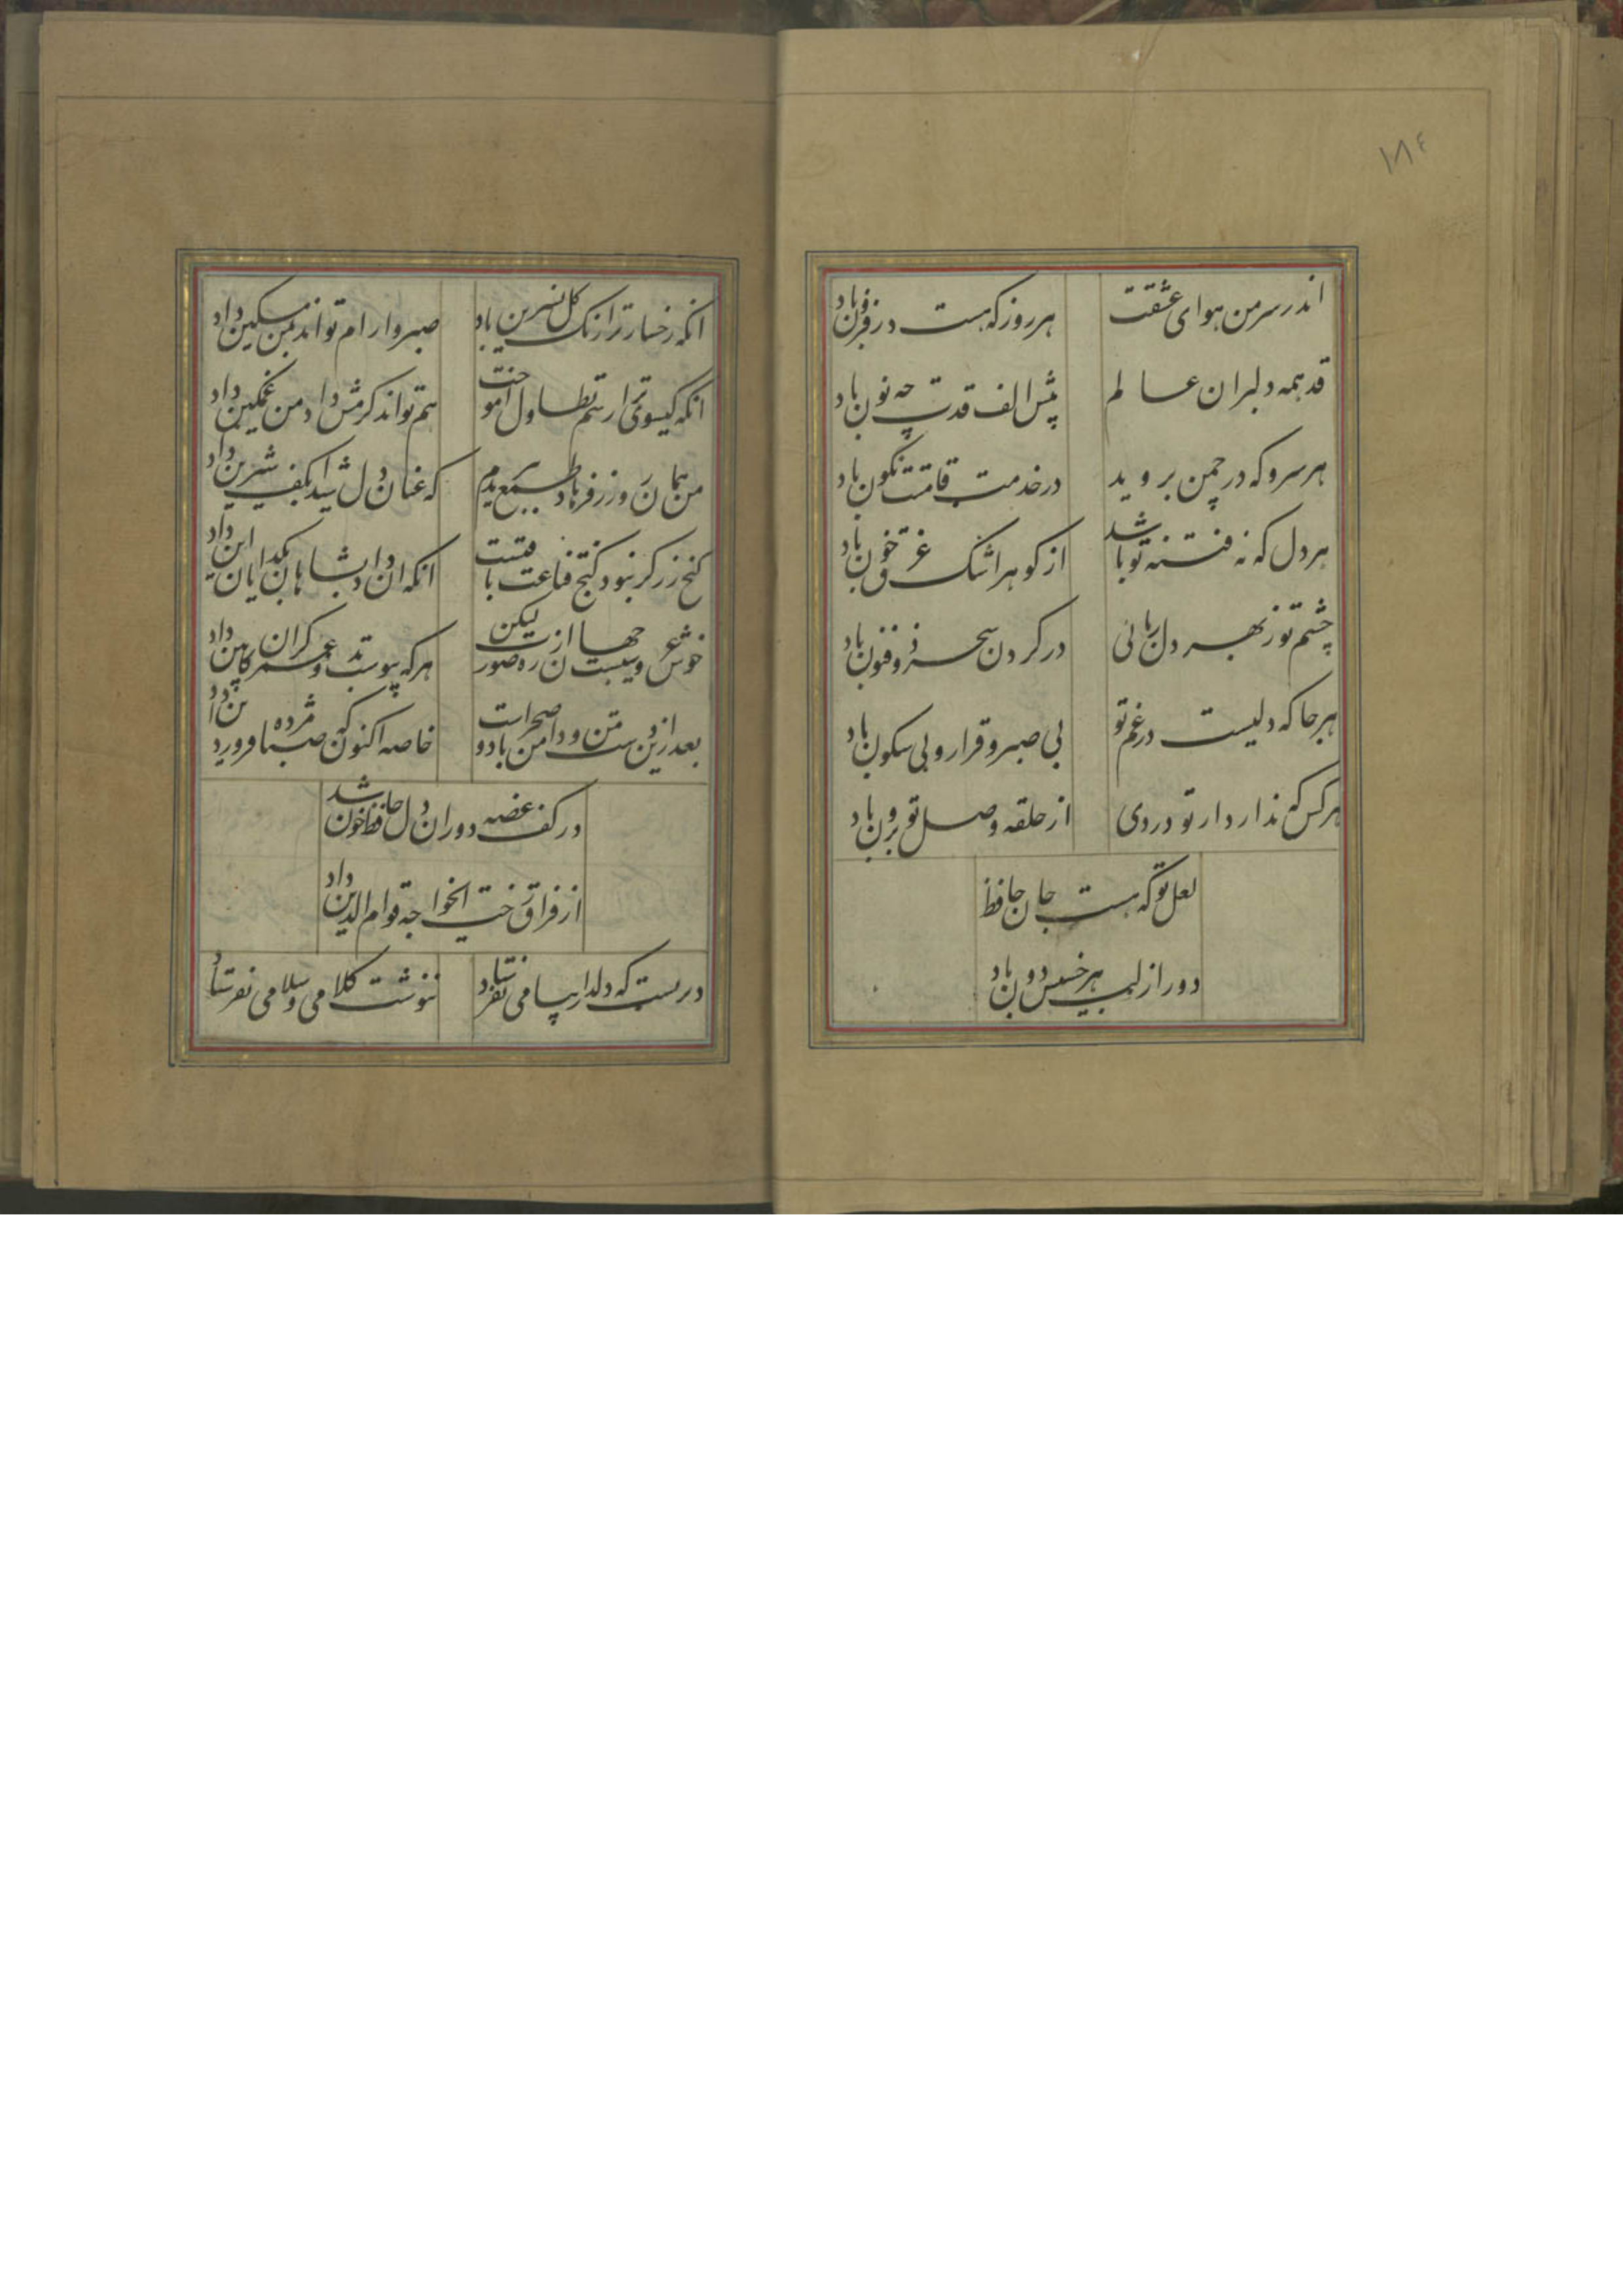 ١٨٤
اندر سر من هوای عشقت
هر روز که هست در فزون باد
قد همه دلبران عالم
پیش الف قدت چه نون باد
هر سرو که در چمن بروید
در خدمت قامتت نکون باد
هر دل که نه فتنه تو باشد
از کوهر اشک غرق خون باد
چشم تو ز بهر دل ربائی
در کردن سحر ذو فنون باد
هر جا که دلیست در غم تو
بی صبر و قرار و بی سکون باد
هر کس که ندارد از تو دردی
از حلقه وصل تو برون باد
لعل تو که هست جان حافظ
دور از لب هر خسیس دون باد
انکه رخسار ترا رنک کل نسرین داد
صبر و ارام تواند بمن مسکین داد
انکه کیسوی ترا رسم تطاول آموخت
هم تواند کرمش داد من غمکین داد
من همان روز ز فرهاد طمع ببریدم
که عنان دل شیدا بکف شیرین داد
کنج زر کر نبود کنج قناعت باقیست
انکه ان داد بشاهان بکدایان این داد
خوش عروسیست جهان از ره صورت لیکن
هر که پیوست بدو عمر کران کابین داد
بعد ازین دست من و دامن باد و صحراست
خاصه اکنون که صبا مژده فروردین داد
در کف غصه دوران دل حافظ خون شد
از فراق رخت ایخواجه قوام الدین داد
دریست که دلدار پیامی نفرستاد
ننوشت کلامی و سلامی نفرستاد